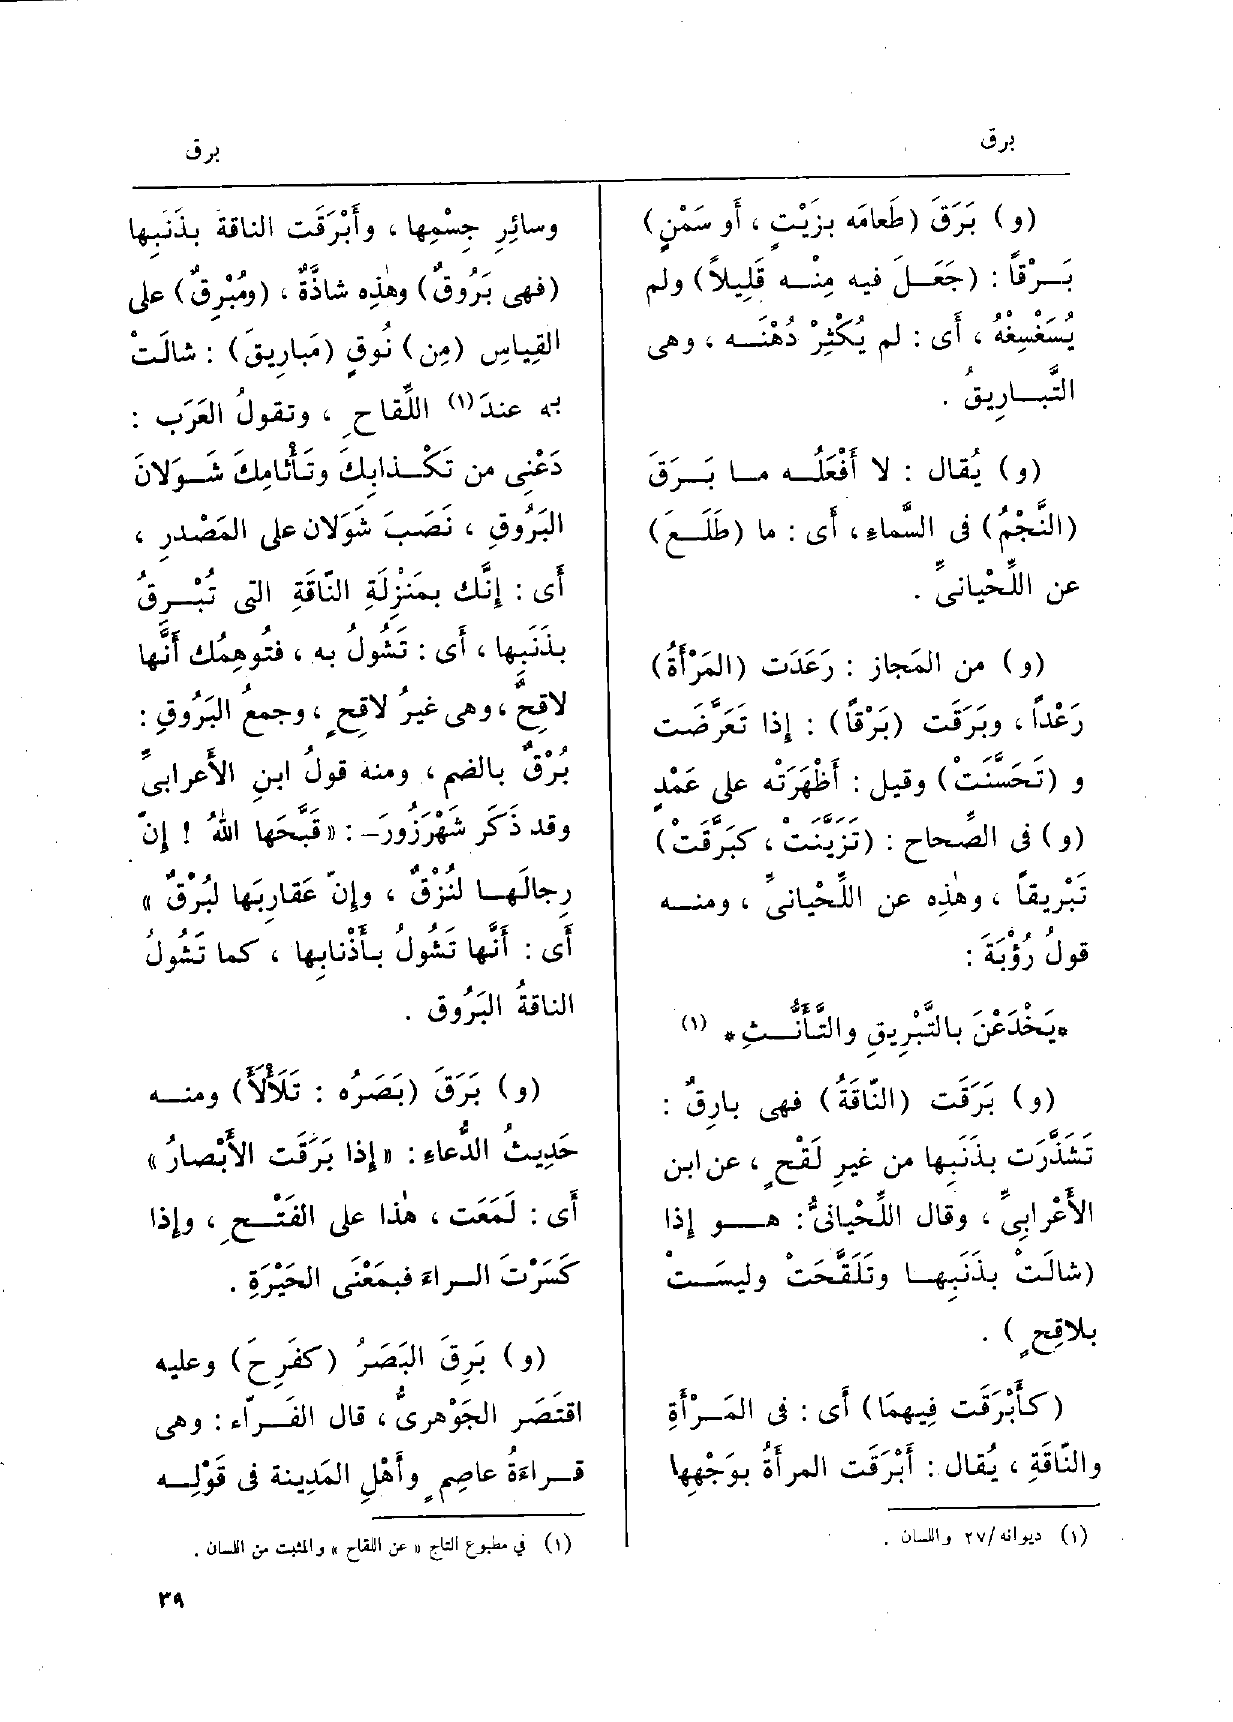 برق
برق
(و) بَرَقَ (طَعامَه بزَيْتٍ ، أَو سَمْنٍ)
بَرْقاً : (جَعَلَ فيه مِنْه قَلِيلاً) ولم
يُسَغْسِغْهُ ، أَى : لم يُكْثِرْ دُهْنَه ، وهى
التَّبارِيقُ .
(و) يُقال : لا أَفْعَلُه ما بَرَقَ
(النَّجْمُ) فى السَّماءِ ، أَى : ما (طَلَعَ)
عن اللِّحْيانىِّ .
(و) من المَجاز : رَعَدَت (المَرْأَةُ)
رَعْداً ، وبَرَقَت (بَرْقاً) : إِذا تَعَرَّضَت
و (تَحَسَّنَتْ) وقيل : أَظْهَرَتْه على عَمْدٍ
(و) فى الصِّحاح : (تَزَيَّنَتْ ، كبَرَّقَتْ)
تَبْرِيقاً ، وهٰذِه عن اللِّحْيانىِّ ، ومنه
قولُ رُؤْبَةَ :
*يَخْدَعْنَ بالتَّبْرِيقِ والتَّأَنُّثِ* (١)
(و) بَرَقَت (النّاقَةُ) فهى بارِقٌ :
تَشَذَّرَت بذَنَبِها من غيرِ لَقْحٍ ، عن ابن
الأَعْرابِىِّ ، وقال اللِّحْيانىُّ : هو إِذا
(شالَتْ بذَنَبِها وتَلَقَّحَتْ وليسَتْ
بلاقِحٍ ) .
(كأَبْرَقَت فِيهِمَا) أَى : فى المَرْأَةِ
والنّاقَةِ ، يُقال : أَبْرَقَت المرأَةُ بوَجْهِها
(١) ديوانه /٢٧ واللسان .
وسائِرِ جِسْمِها ، وأَبْرَقَت الناقَةُ بذَنَبِها
(فهى بَرُوقٌ) وهٰذِه شاذَّةٌ ، (ومُبْرِقٌ) على
القِياسِ (مِن) نُوقٍ (مَبارِيقَ) : شالَتْ
به عندَ (١) اللِّقاحِ ، وتقولُ العَرَب :
دَعْنِى من تَكْذابِكَ وتَأْثامِكَ شَوَلانَ
البَرُوقِ ، نَصَبَ شَوَلان على المَصْدرِ ،
أَى : إِنَّك بمَنْزِلَةِ النّاقَةِ التى تُبْرِقُ
بذَنَبِها ، أَى : تَشُولُ به ، فتُوهِمُك أَنَّها
لاقِحٌ ، وهى غيرُ لاقِحٍ ، وجمعُ البَرُوقِ :
بُرْقٌ بالضم ، ومنه قولُ ابنِ الأَعرابىِّ
وقد ذَكَر شَهْرَزُورَ– : «قَبَّحَها اللهُ ! إِنّ
رِجالَها لنُزْقٌ ، وإِنّ عَقارِبَها لبُرْقٌ »
أَى : أَنَّها تَشُولُ بأَذْنابِها ، كما تَشُولُ
الناقةُ البَرُوق .
(و) بَرَقَ (بَصَرُه : تَلَأْلَأَ) ومنه
حَدِيثُ الدُّعاءِ : «إِذا بَرَقَت الأَبْصارُ»
أَى : لَمَعَت ، هٰذا على الفَتْحِ ، وإِذا
كَسَرْتَ الراءَ فبمَعْنَى الحَيْرَةِ .
(و) بَرِقَ البَصَرُ (كفَرِحَ) وعليه
اقتَصَر الجَوْهَرِىُّ ، قال الفَرّاء : وهى
قراءَةُ عاصِمٍ وأَهْلِ المَدِينة فى قَوْلِه
(١) فى مطبوع التاج « عن اللقاح » والمثبت من اللسان .
٣٩